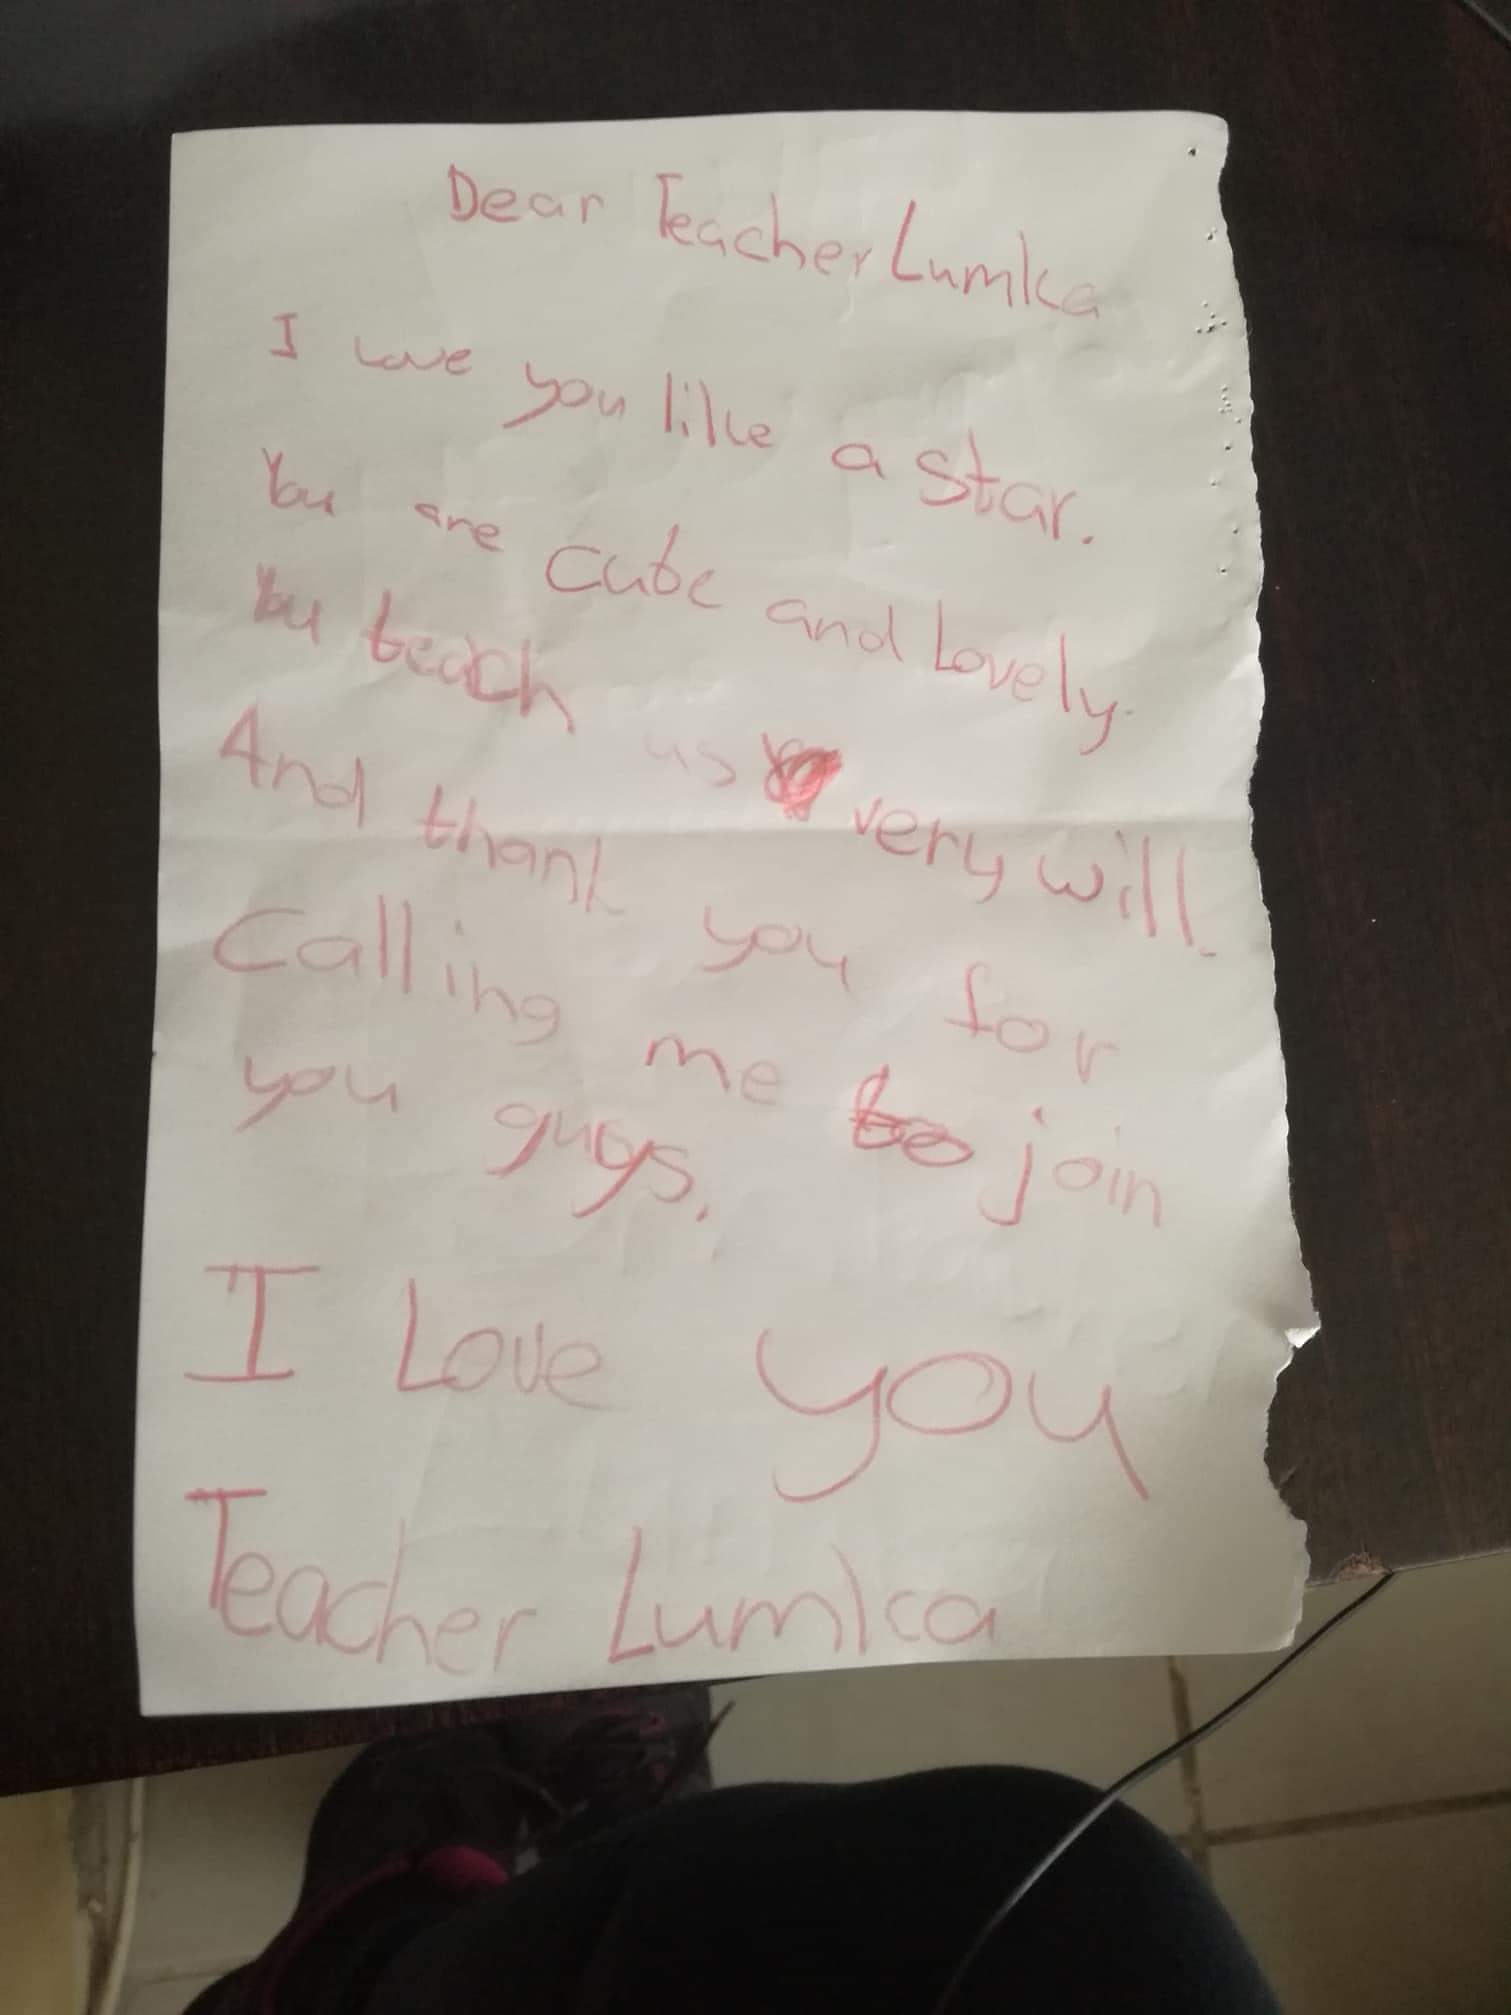 Dear Teacher Lumka
I Love you like a star.
You are cute and Lovely.
You teach us very will.
And thank you for
Calling me to join
you guys.
I Love you
Teacher Lumka